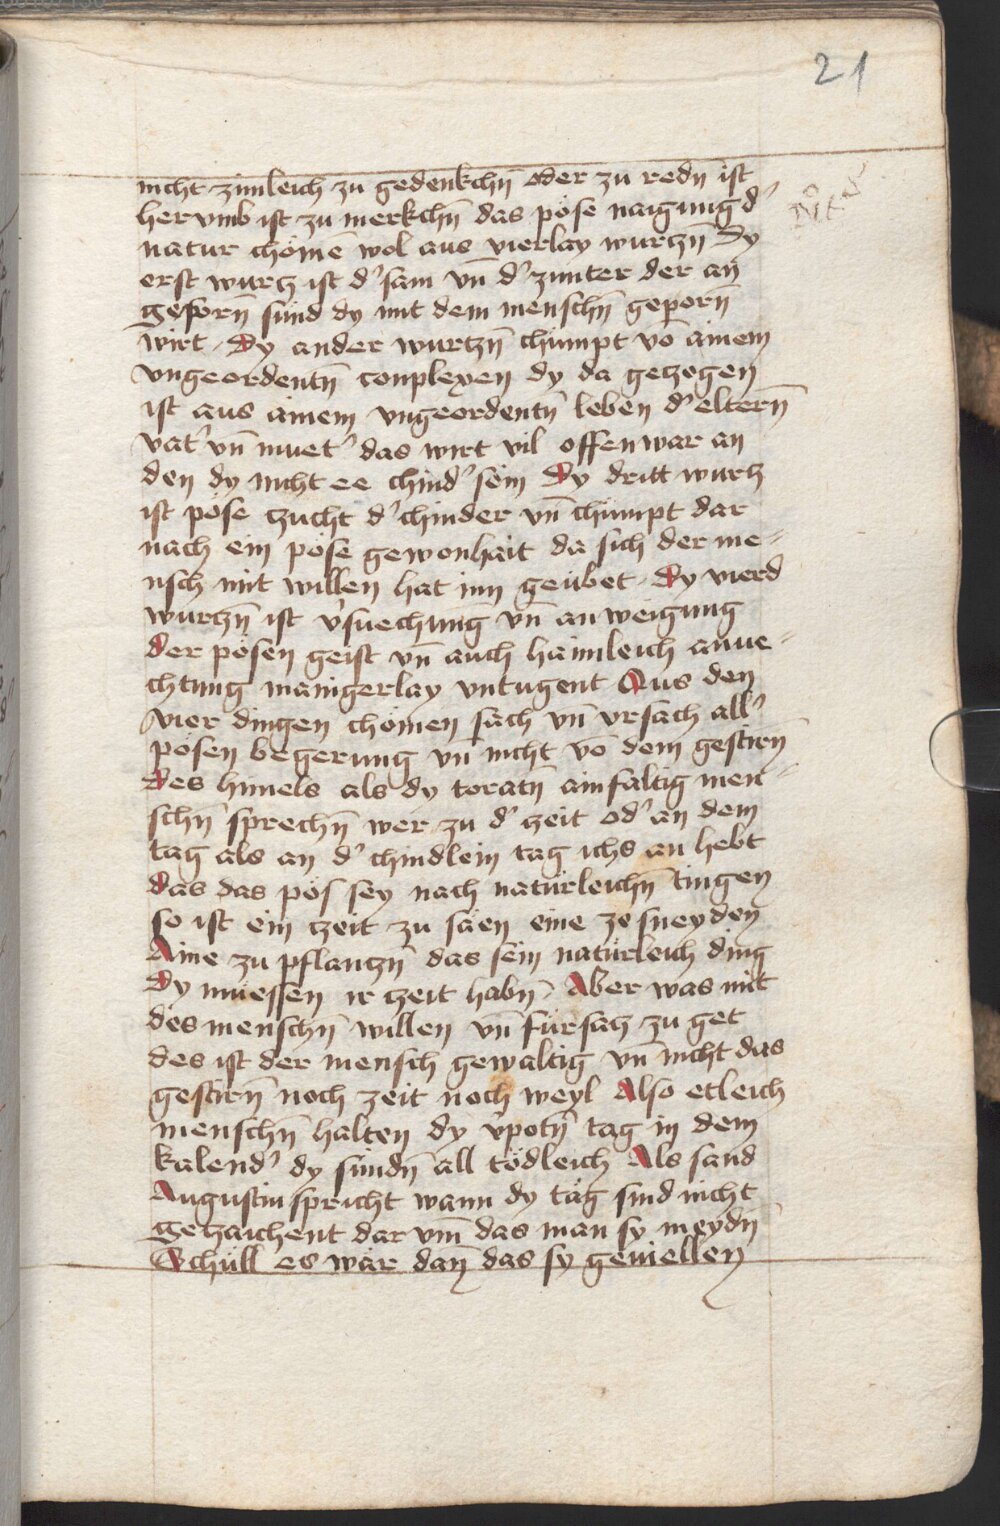 21
nicht zimleich zu gedenkchn̄ oder zu redn̄ ist
her vmb ist zu merkchn̄ das pöse naigung d'
natur chömē wol aus vierlay wurczn̄ Dy
erst wurcz ist d' sam vn̄ d' zunter der an
geporn̄ sünd dy mit dem menschn̄ geporn̄
wirt Dy ander wurtzn̄ chümpt vō ainem
vngeordentn̄ conplexen dy da geczogen
ist aus ainem vngeordentn̄ leben d' eltern̄
vat' vn̄ muet' das wirt vil offenwar an
den dy nicht ee chind' sein Dy dritt wurcz
ist pöse czucht d' chinder vn̄ chümpt dar
nach ein pöse gewonhait da sich der me-
nsch mit willen hat inn geübet Dy vierd
wurczn̄ ist v'suechung vn̄ anweigung
der pösen geist vn̄ auch haimleich anue-
chtung mänigerlay vntugent Aus den
vier dingen chömen sach vn̄ vrsach all'
pösen begerung vn̄ nicht vō dem gestirn̄
des himels als dy toratn̄ ainfaltig men-
schn̄ sprechn̄ wer zu d' czeit od' an dem
tag als an d' chindlein tag ichs an hebt
das das pös sey nach natürleichn̄ tingen
so ist ein czeit zu säen eine ze sneyden
Aine zu pflanczn̄ das sein natürleich ding
Dy muessen ir czeit habn̄ Aber was mit
des menschn̄ willen vn̄ fürsacz zu get
des ist der mensch gewaltig vn̄ nicht das
gestirn̄ noch zeit noch weyl Also etleich
menschn̄ halten dy v'potn̄ tag in dem
kalend' dy sündn̄ all tödleich Als sand
Augustin spricht wann dy täg sind nicht
geczaichent dar vm̄ das man sy meydn̄
Schüll es wär dan̄ das sy geuiellen